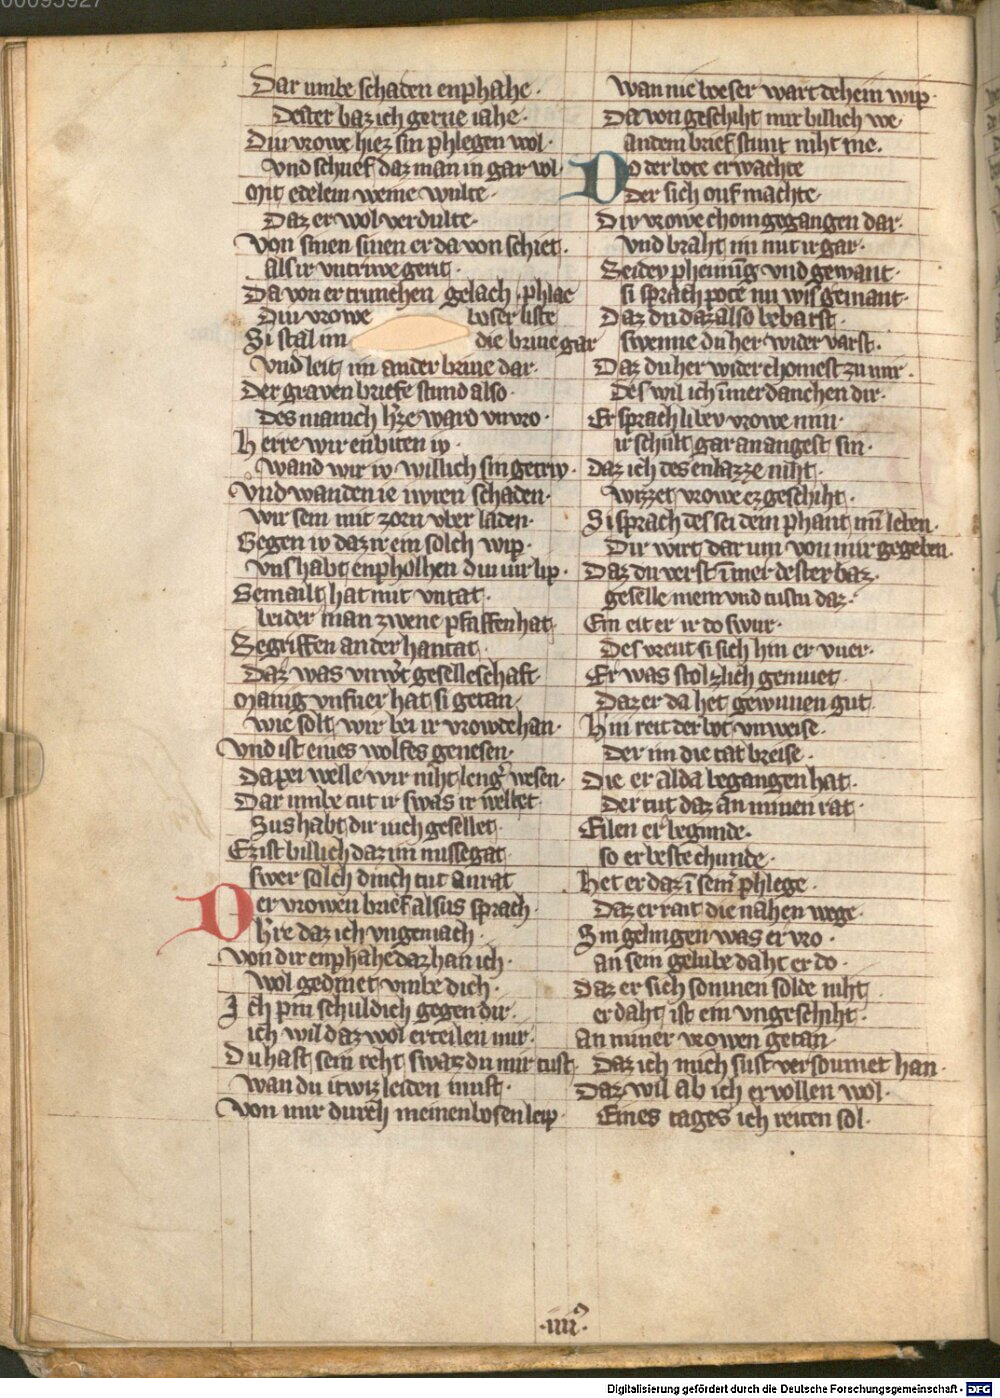 Dar umbe schaden enphahe ·
Dester baz ich gerne iahe ·
Diu vrowe hiez sin phlegen wol ·
Vnd schuef daz man in gar vol ·
Mit edelem weine vulte ·
Daz er wol verdulte ·
Von sinen sinen er da von schiet ·
als ir vntriwe geriet ·
Da von er trunchen gelach · phlac
Diu vrowe boser liste
Si stal im die brieue gar
Vnd leit im ander brieue dar ·
Der graven briefe stund also ·
Des manich hrze ward vnvro ·
Herre wir enbiten iv ·
wand wir iv willich sin getriv ·
Vnd wanden ie iwren schaden ·
wir sein mit zorn vber laden ·
Gegen iv daz ir ein solch wip ·
Vns habt enpholhen diu iur lip ·
Gemailt hat mit vntat ·
leider man zwene pfaffen hat
Begriffen an der hantat ·
Daz was vnwt geselleschaft ·
Manig vnfuer hat si getan ·
wie solt wir bei ir vrowde han ·
Vnd ist eines wolfes genesen ·
Da pei welle wir niht leng wesen ·
Dar umbe tut ir swas ir wellet ·
Sus habt dir iuch gesellet ·
Ez ist billich daz im missegat
swer solch dinch tut an rat
Der vrowen brief alsus sprach ·
hre daz ich vngemach ·
Von dir enphahe daz han ich ·
wol gedinet vmbe dich ·
Ich pin schuldich gegen dir ·
ich wil daz wol erteilen mir ·
Du hast sein reht swaz du mir tust
wan du itwiz leiden must ·
Von mir durch meinen bosen leip ·
Wan nie boeser wart dehein wip ·
Da von geschiht mir billich we
andem brief stunt niht me ·
Do der bote erwachte
Der sich ouf machte ·
Div vrowe chom gegangen dar ·
Vnd braht im mit ir gar ·
Beidev phenning vnd gewant ·
si sprach pote nu wis gemant ·
Daz du daz also bebarst ·
swenne du her wider varst ·
Daz du her wider chomest zu mir ·
Des wil ich imer danchen dir ·
Er sprach libev vrowe min ·
ir schult gar an angest sin ·
Daz ich des enlazze niht ·
wizzet vrowe ez geschiht ·
Si sprach des sei dein phant min leben ·
Dir wirt dar um von mir gegeben ·
Daz du verst imer dester baz ·
geselle mein vnd tustu daz ·
Ein eit er ir do swur ·
Des vreut si sich hin er vuer ·
Er was stolzlich gemuet
Daz er da het gewunnen gut
Hin reit der bot vnweise ·
Der im die tat breise ·
Die er alda begangen hat ·
Der tut daz an minen rat ·
Eilen er begunde ·
so er beste chunde ·
Het er daz i seinr phlege ·
Daz er rait die nahen wege ·
Sin gelingen was er vro ·
an sein gelube daht er do ·
Daz er sich soumen solde niht
er daht ist ein vngeschiht ·
An miner vrowen getan
Daz ich mich sust versoumet han ·
Daz wil ab ich ervollen wol ·
Eines tages ich reiten sol ·
· iiii ·
Digitalisierung gefördert durch die Deutsche Forschungsgemeinschaft - DFG